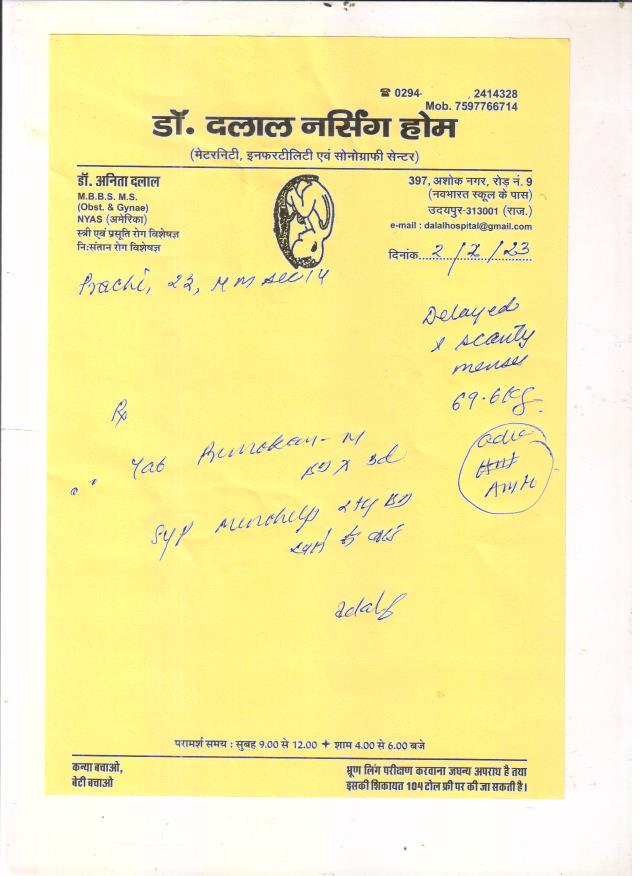 ☎ 0294- , 2414328
Mob. 7597766714
डॉ. दलाल नर्सिंग होम
(मेटरनिटी, इनफरटीलिटी एवं सोनोग्राफी सेन्टर)
डॉ. अनिता दलाल
M.B.B.S. M.S.
(Obst. & Gynae)
NYAS (अमेरिका)
स्त्री एवं प्रसूति रोग विशेषज्ञ
नि:संतान रोग विशेषज्ञ
397, अशोक नगर, रोड़ नं. 9
(नवभारत स्कूल के पास)
उदयपुर-313001 (राज.)
e-mail : dalalhospital@gmail.com
दिनांक 2/7/23
Prachi, 22, sec 14
Delayed
& scanty
menses
69.6kg
Rx
Tab -M
BD x 3d
adv
AMH
Syp Menohelp 2 BD
खाने के बाद
परामर्श समय : सुबह 9.00 से 12.00 ✦ शाम 4.00 से 6.00 बजे
कन्या बचाओ,
बेटी बचाओ
भ्रूण लिंग परीक्षण करवाना जघन्य अपराध है तथा
इसकी शिकायत 104 टोल फ्री पर की जा सकती है।